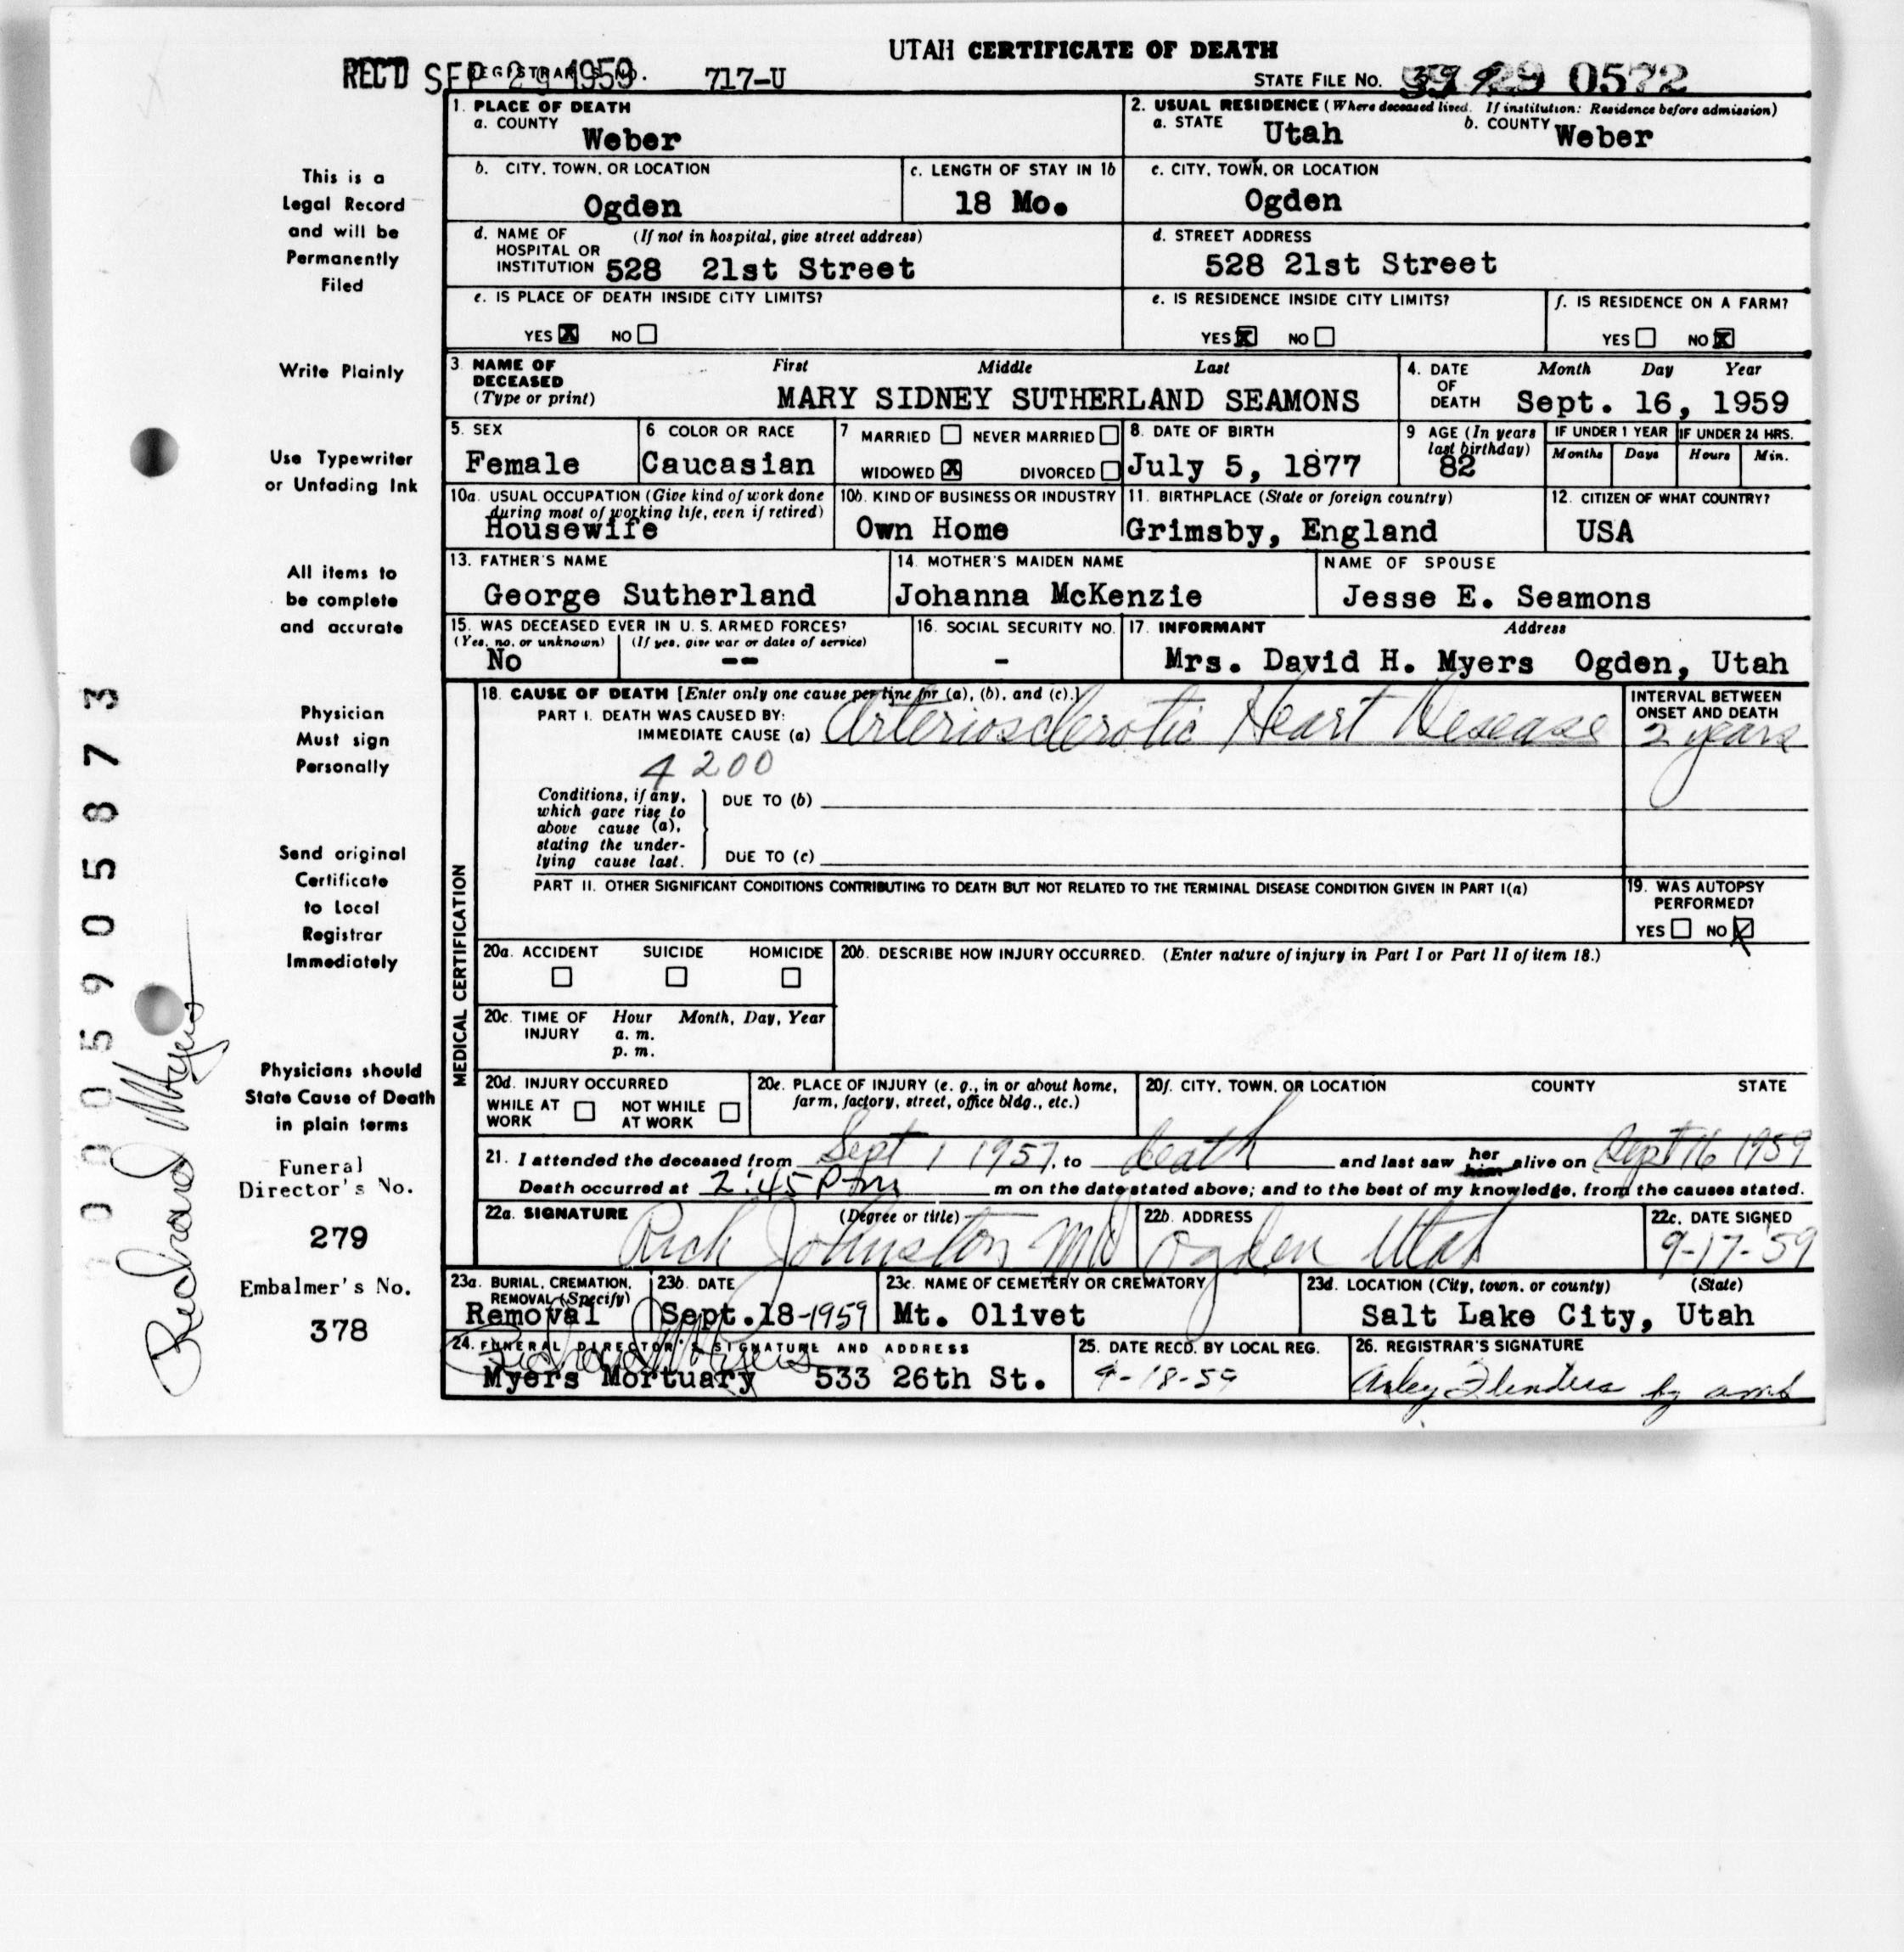 UTAH CERTIFICATE OF DEATH
REC'D SEP 29 1959 REGISTRAR'S NO. 717-U STATE FILE NO. 0572
1. PLACE OF DEATH
a. COUNTY Weber
2. USUAL RESIDENCE (Where deceased lived. If institution: Residence before admission)
a. STATE Utah b. COUNTY Weber
b. CITY, TOWN, OR LOCATION Ogden
c. LENGTH OF STAY IN 1b 18 Mo.
c. CITY, TOWN, OR LOCATION Ogden
d. NAME OF HOSPITAL OR INSTITUTION (If not in hospital, give street address) 528 21st Street
d. STREET ADDRESS 528 21st Street
e. IS PLACE OF DEATH INSIDE CITY LIMITS?
YES X NO
e. IS RESIDENCE INSIDE CITY LIMITS?
YES X NO
f. IS RESIDENCE ON A FARM?
YES NO X
3. NAME OF DECEASED (Type or print) First Middle Last
MARY SIDNEY SUTHERLAND SEAMONS
4. DATE OF DEATH Month Day Year
Sept. 16, 1959
5. SEX Female
6 COLOR OR RACE Caucasian
7 MARRIED NEVER MARRIED
WIDOWED X DIVORCED
8. DATE OF BIRTH July 5, 1877
9 AGE (In years last birthday) 82
IF UNDER 1 YEAR Months Days
IF UNDER 24 HRS. Hours Min.
10a. USUAL OCCUPATION (Give kind of work done during most of working life, even if retired) Housewife
10b. KIND OF BUSINESS OR INDUSTRY Own Home
11. BIRTHPLACE (State or foreign country) Grimsby, England
12. CITIZEN OF WHAT COUNTRY? USA
13. FATHER'S NAME George Sutherland
14. MOTHER'S MAIDEN NAME Johanna McKenzie
NAME OF SPOUSE Jesse E. Seamons
15. WAS DECEASED EVER IN U. S. ARMED FORCES?
(Yes, no, or unknown) No (If yes, give war or dates of service) --
16. SOCIAL SECURITY NO. -
17. INFORMANT Address
Mrs. David H. Myers Ogden, Utah
MEDICAL CERTIFICATION
18. CAUSE OF DEATH [Enter only one cause per line for (a), (b), and (c).]
PART I. DEATH WAS CAUSED BY:
IMMEDIATE CAUSE (a) Arteriosclerotic Heart Disease
INTERVAL BETWEEN ONSET AND DEATH
2 years
4200
Conditions, if any, which gave rise to above cause (a), stating the underlying cause last.
DUE TO (b)
DUE TO (c)
PART II. OTHER SIGNIFICANT CONDITIONS CONTRIBUTING TO DEATH BUT NOT RELATED TO THE TERMINAL DISEASE CONDITION GIVEN IN PART I(a)
19. WAS AUTOPSY PERFORMED?
YES NO X
20a. ACCIDENT SUICIDE HOMICIDE
20b. DESCRIBE HOW INJURY OCCURRED. (Enter nature of injury in Part I or Part II of item 18.)
20c. TIME OF INJURY Hour a. m. p. m. Month, Day, Year
20d. INJURY OCCURRED
WHILE AT WORK NOT WHILE AT WORK
20e. PLACE OF INJURY (e. g., in or about home, farm, factory, street, office bldg., etc.)
20f. CITY, TOWN, OR LOCATION COUNTY STATE
21. I attended the deceased from Sept 1 1957, to death and last saw her him alive on Sept 16 1959
Death occurred at 2:45 P m m on the date stated above; and to the best of my knowledge, from the causes stated.
22a. SIGNATURE (Degree or title) Rich Johnston MD
22b. ADDRESS Ogden Utah
22c. DATE SIGNED 9-17-59
23a. BURIAL, CREMATION, REMOVAL (Specify) Removal
23b. DATE Sept. 18-1959
23c. NAME OF CEMETERY OR CREMATORY Mt. Olivet
23d. LOCATION (City, town, or county) (State) Salt Lake City, Utah
24. FUNERAL DIRECTOR'S SIGNATURE AND ADDRESS
Richard Myers
Myers Mortuary 533 26th St.
25. DATE RECD. BY LOCAL REG. 9-18-59
26. REGISTRAR'S SIGNATURE
by
This is a
Legal Record
and will be
Permanently
Filed
Write Plainly
Use Typewriter
or Unfading Ink
All items to
be complete
and accurate
Physician
Must sign
Personally
Send original
Certificate
to Local
Registrar
Immediately
Physicians should
State Cause of Death
in plain terms
Funeral
Director's No.
279
Embalmer's No.
378
Richard Myers
0005905873